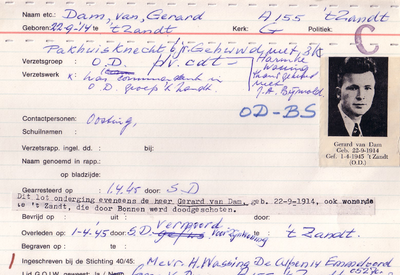 Naam etc.: Dam, van, Gerard A 155 't Zandt
Geboren: 22-9-'14 te 't Zandt Kerk: G Politiek:
C
Pakhuisknecht
Verzetsgroep : O.D. plv. cdt -
Verzetswerk x was commandant in
O.D. groep 't Zandt.
Hermine
Wassing
thans gehuwd
met
OD-BS
Contactpersonen: Oosting,
Schuilnemen :
Verzetsrap. ingel. dd. : bij:
Naam genoemd in rapp.:
op bladzijde:
Gearresteerd op : 1.4.45 door: S.D
Dit lot onderging eveneens de heer Gerard van Dam, geb. 22-9-1914, ook wonende
te 't Zandt, die door Bonnen werd doodgeschoten.
Bevrijd op - : uit : door:
Overleden op : 1-4-'45 door: S.D. vermoord te 't Zandt.
Begraven op : te :
Ingeschreven bij de Stichting 40/45: Mevr. H. Wassing
Gerard van Dam
Geb. 22-9-1914
Gef. 1-4-1945 't Zandt
(O.D.)